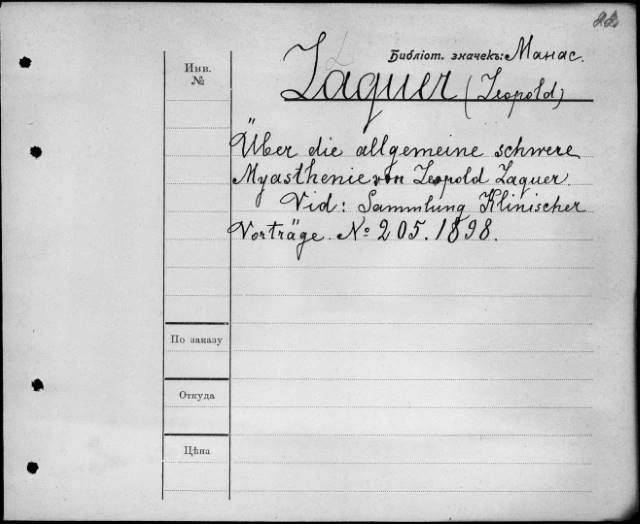 22
Библіот. значекъ: Манас.
Инв. №
Laquer (Leopold)
Über die allgemeine schwere
Myasthenie von Leopold Laquer.
Vid: Sammlung Klinischer
Vorträge. № 205. 1898.
По заказу
Откуда
Цѣна